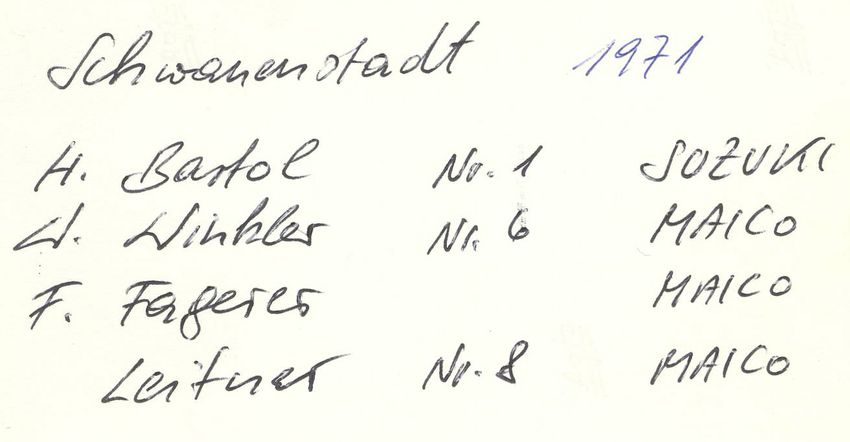 Schwanenstadt 1971
H. Bastol Nr. 1 SUZUKI
W. Winkler Nr. 6 MAICO
F. Fagerer MAICO
Leitner Nr. 8 MAICO